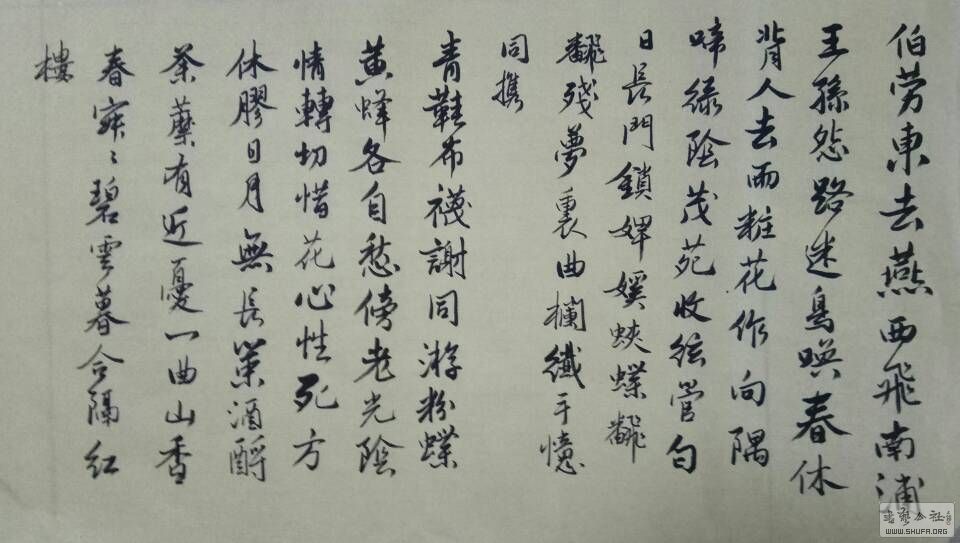 伯劳東去燕西飛南浦
王孫怨路迷鳥喚春休
背人去雨粧花作向隅
啼綠陰茂苑收絃管白
日長門鎖婢媛蛺蝶飜
飜殘夢裏曲欄纖手憶
同携
青鞋布襪謝同游粉蝶
黄蜂各自愁傍老光陰
情轉切惜花心性死方
休膠日月無長策酒酹
荼蘼有近憂一曲山香
春寂〻碧雲暮合隔紅
樓
書藝公社
WWW.SHUFA.ORG